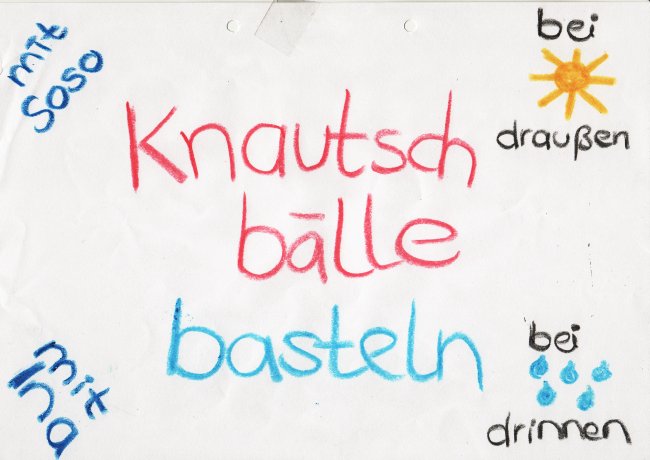 mit
Soso
bei
draußen
Knautsch
bälle
basteln
mit
Ina
bei
drinnen